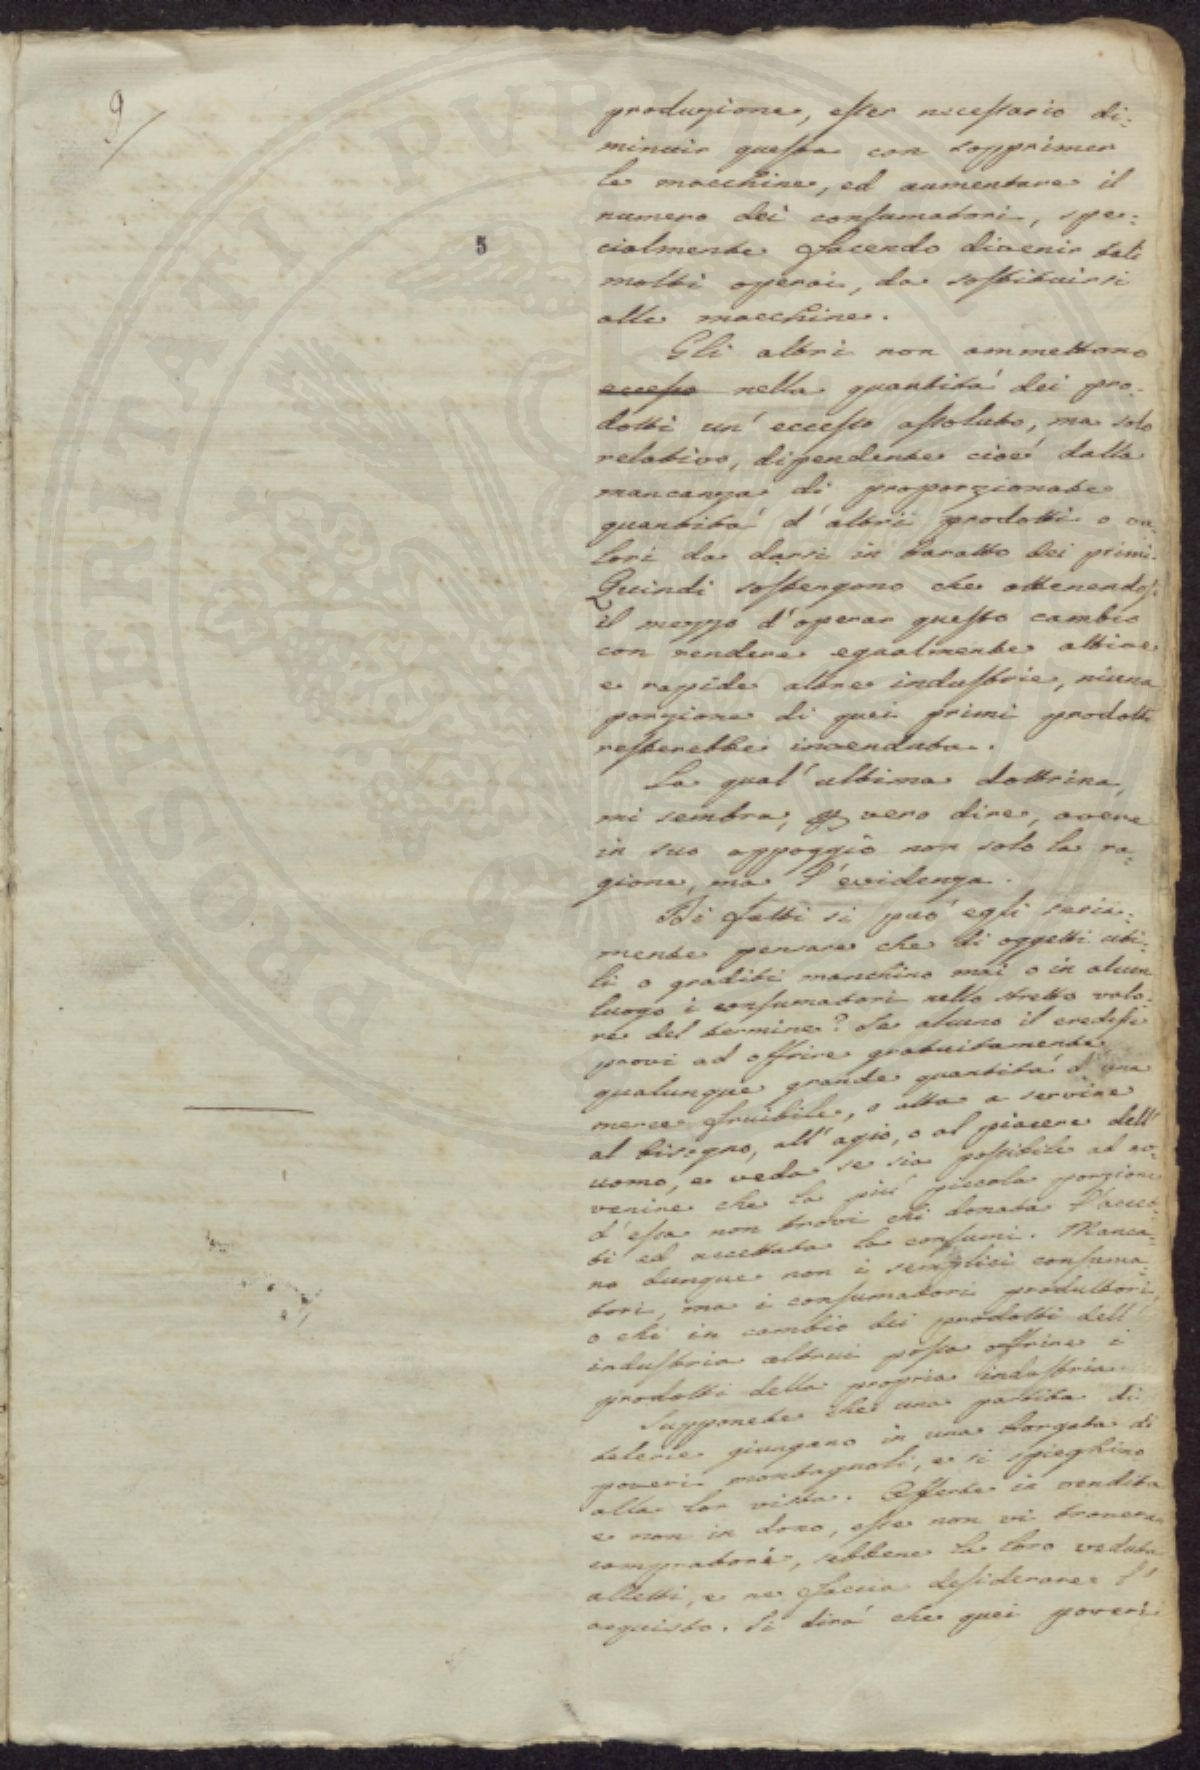 9
5
produzione, esser necessario di=
minuir questa con sopprimer
le macchine, ed aumentare il
numero dei consumatori, spe=
cialmente facendo divenir tali
molti operai, da sostituirsi
alle macchine.
Gli altri non ammettono
eccesso nella quantità dei pro=
dotti un' eccesso assoluto, ma solo
relativo, dipendente cioè dalla
mancanza di proporzionate
quantità d'altri prodotti o va=
lori da darsi in baratto dei primi.
Quindi sostengono che ottenendosi
il mezzo d'operar questo cambio
con rendere egualmente attive
e rapide altre industrie, niuna
porzione di quei primi prodotti
resterebbe invenduta.
La qual' ultima dottrina,
mi sembra, a vero dire, avere
in suo appoggio non solo la ra=
gione, ma l'evidenza.
Di fatti si può egli seria=
mente pensare che di oggetti uti=
li o graditi manchino mai o in alcun
luogo i consumatori nello stretto valo=
re del termine? Se alcuno il credesse
provi ad offrire gratuitamente
qualunque grande quantità d'una
merce fruibile, o atta a servire
al bisogno, all'agio, o al piacere dell'
uomo, e veda se sia possibile ad av=
venire che la più piccola porzione
d'essa non trovi chi donata l'accet=
ti ed accettata la consumi. Manca=
no dunque non i semplici consuma=
tori, ma i consumatori produttori,
o chi in cambio dei prodotti dell'
industria altrui possa offrire i
prodotti della propria industria.
Supponete che una partita di
telerie giungano in una borgata di
poveri montagnoli, e si spieghino
alla lor vista. Offerte in vendita
e non in dono, esse non vi troveran
compratore, sebbene la loro veduta
alletti, e ne faccia desiderare l'
acquisto. Si dirà che quei poveri